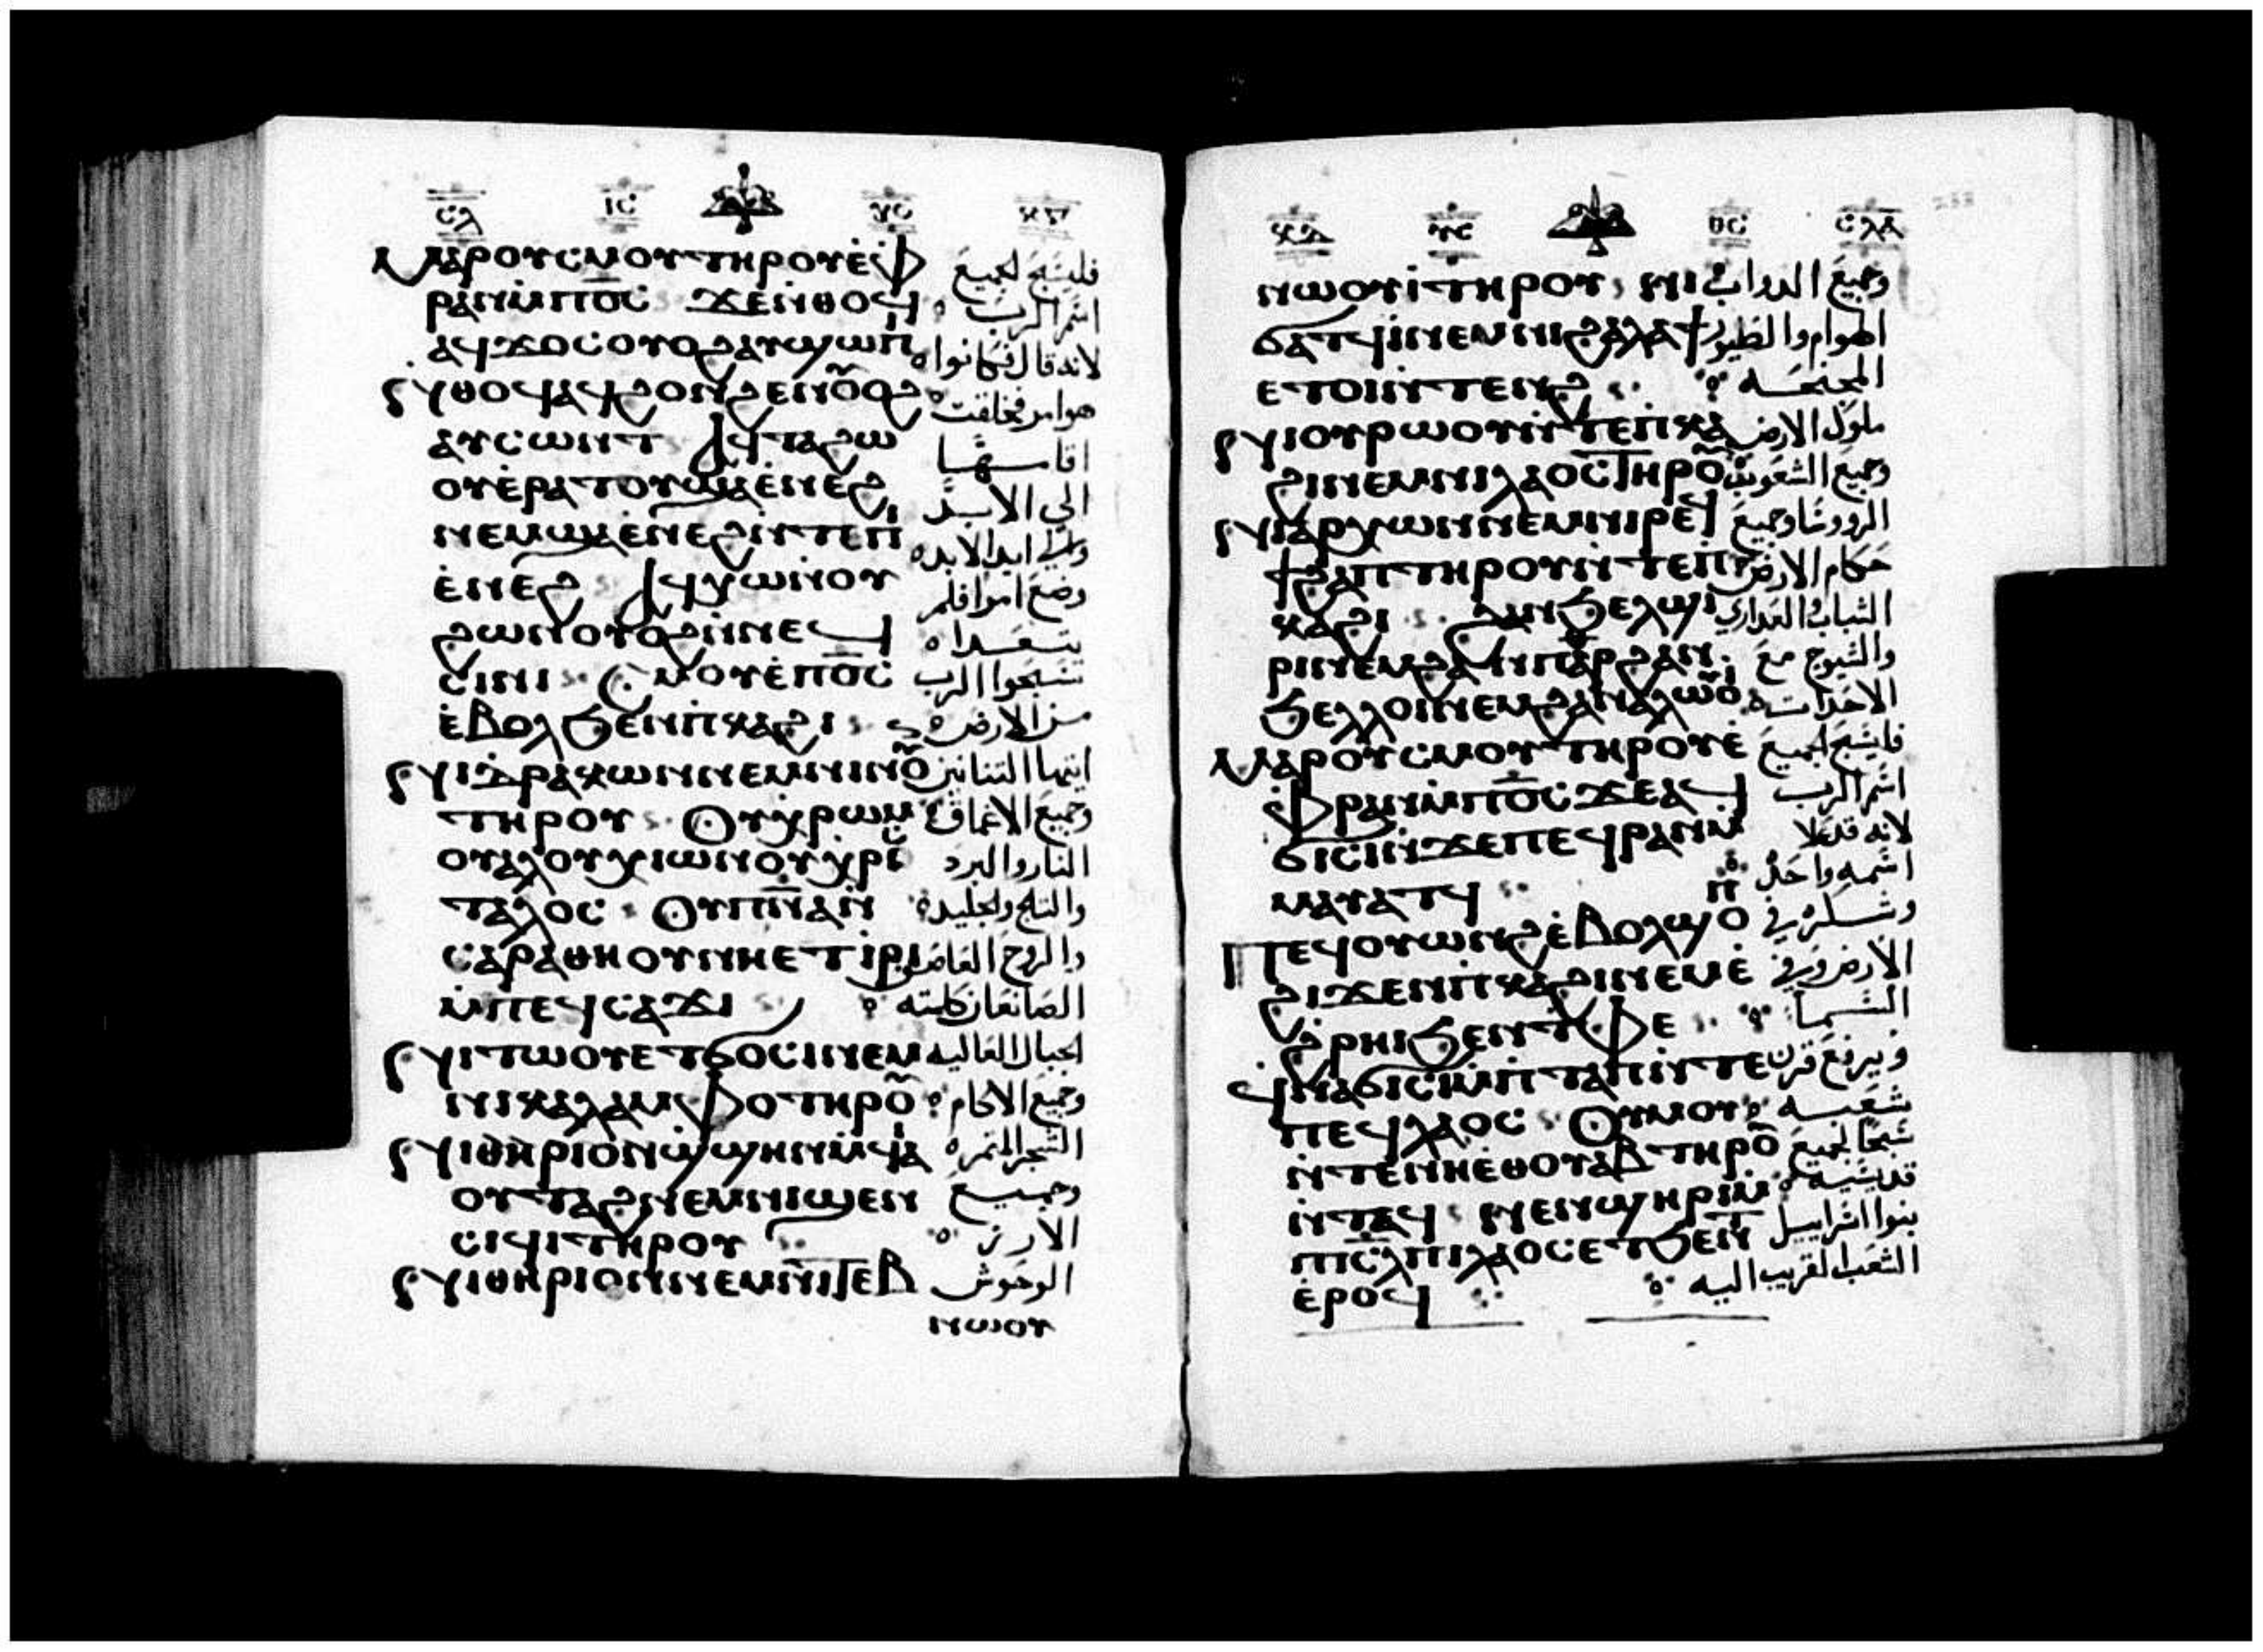 ⲥⲗ ⲓⲥ ⲭⲥ
ⲙⲁⲣⲟⲩⲥⲙⲟⲩ ⲧⲏⲣⲟⲩ ⲉ̇ⲫ فليسبح لجميع
ⲣⲁⲛ ⲙ̇ⲡⲟ̅ⲥ̅ ϫⲉ ⲛ̇ⲑⲟϥ اسم الرب
ⲁϥϫⲟⲥ ⲟⲩⲟϩ ⲁⲩϣⲱⲡⲓ لانه قال فكانوا
ⲛ̇ⲑⲟϥ ⲁϥϩⲟⲛϩⲉⲛ ⲟⲩⲟϩ هو امر فخلقت
ⲁⲩⲥⲱⲛⲧ ⲁϥⲧⲁϩⲱ اقامها
ⲟⲩ ⲉ̇ⲣⲁⲧⲟⲩ ϣⲁ ⲉ̇ⲛⲉϩ الى الابد
ⲛⲉⲙ ϣⲁ ⲉ̇ⲛⲉϩ ⲛ̇ⲧⲉ ⲡⲓ والى ابد الابد
ⲉ̇ⲛⲉϩ ⲁϥⲭⲱ ⲛ̇ⲟⲩ وضع امرا فلم
ϩⲱⲛ ⲟⲩⲟϩ ⲛ̇ⲛⲉϥ يتعدا
ⲥⲓⲛⲓ ⲥⲙⲟⲩ ⲉ̇ⲡⲟ̅ⲥ̅ سبحوا الرب
ⲉ̇ⲃⲟⲗ ϧⲉⲛ ⲡ̇ⲕⲁϩⲓ من الارض
ⲛⲓⲇⲣⲁⲕⲱⲛ ⲛⲉⲙ ⲛⲓⲛⲟⲩⲛ ايتها التنانين
ⲧⲏⲣⲟⲩ ⲟⲩⲭ̇ⲣⲱⲙ وجميع الاعماق
ⲟⲩⲁⲗ ⲟⲩⲭⲓⲱⲛ ⲟⲩⲭ̇ⲣⲓⲥ النار والبرد
ⲧⲁⲗⲟⲥ ⲟⲩⲡ̅ⲛ̅ⲁ̅ ⲛ̇ والثلج والجليد
ⲥⲁⲣⲁⲑⲏⲟⲩ ⲛⲏⲉⲧⲓ̇ⲣⲓ والروح العاصف
ⲙ̇ⲡⲉϥⲥⲁϫⲓ الصانعة كلمته
ⲛⲓⲧⲱⲟⲩ ⲉⲧϭⲟⲥⲓ ⲛⲉⲙ الجبال العاليه
ⲛⲓⲕⲁⲗⲁⲙⲫⲟ ⲧⲏⲣⲟⲩ وجميع الاكام
ⲛⲓⲑⲏⲣⲓⲟⲛ ⲛ̇ϣϣⲏⲛ ⲙ̇ϥⲁⲓ الشجر المثمره
ⲟⲩⲧⲁϩ ⲛⲉⲙ ⲛⲓϣⲉⲛ وجميع
ⲥⲓϥⲓ ⲧⲏⲣⲟⲩ الارز
ⲛⲓⲑⲏⲣⲓⲟⲛ ⲛⲉⲙ ⲛⲓⲧⲉⲃ الوحوش
ⲛⲱⲟⲩ
ⲩⲥ ⲑⲥ ⲥⲗⲁ
ⲛⲱⲟⲩⲓ̇ ⲧⲏⲣⲟⲩ ⲛⲓ وجميع الدواب
ϭⲁⲧϥⲓ ⲛⲉⲙ ⲛⲓϩⲁⲗⲁϯ الهوام والطيور
ⲉⲧⲟⲓ ⲛ̇ⲧⲉⲛϩ المجنحه
ⲛⲓⲟⲩⲣⲱⲟⲩ ⲛ̇ⲧⲉ ⲡ̇ⲕⲁ ملوك الارض
ϩⲓ ⲛⲉⲙ ⲛⲓⲗⲁⲟⲥ ⲧⲏⲣⲟⲩ وجميع الشعوب
ⲛⲓⲁⲣⲭⲱⲛ ⲛⲉⲙ ⲛⲓⲣⲉϥ الروؤسا وجميع
ϯϩⲁⲡ ⲧⲏⲣⲟⲩ ⲛ̇ⲧⲉ ⲡ̇ حكام الارض
ⲕⲁϩⲓ ϩⲁⲛϧⲉⲗϣⲓ الشباب والعذارى
ⲣⲓ ⲛⲉⲙ ϩⲁⲛⲡⲁⲣ ϩⲁⲛ والشيوخ مع
ϧⲉⲗⲗⲟⲓ ⲛⲉⲙ ϩⲁⲛⲁⲗⲱⲟⲩⲓ الاحداث
ⲙⲁⲣⲟⲩⲥⲙⲟⲩ ⲧⲏⲣⲟⲩ ⲉ̇ فليسبح لجميع
ⲫⲣⲁⲛ ⲙ̇ⲡⲟ̅ⲥ̅ ϫⲉ ⲁϥ اسم الرب
ϭⲓⲥⲓ ⲛ̇ϫⲉ ⲡⲉϥⲣⲁⲛ ⲙ̇ لانه قد علا
ⲙⲁⲩⲁⲧϥ اسمه واحده
ⲡⲉϥⲟⲩⲱⲛϩ ⲉ̇ⲃⲟⲗ ϣⲟⲡ وشكره في
ϩⲓϫⲉⲛ ⲡ̇ⲕⲁϩⲓ ⲛⲉⲙ ⲉ̇ الارض وفي
ϩ̇ⲣⲏⲓ ϧⲉⲛ ⲧ̇ⲫⲉ السما
ϥⲛⲁϭⲓⲥⲓ ⲙ̇ⲡ̇ⲧⲁⲡ ⲛ̇ⲧⲉ ويرفع قرن
ⲡⲉϥⲗⲁⲟⲥ ⲟⲩⲥⲙⲟⲩ شعبه
ⲛ̇ⲧⲉ ⲛⲏⲉ̇ⲑⲟⲩⲁⲃ ⲧⲏⲣⲟⲩ سبحا لجميع
ⲛ̇ⲧⲁϥ ⲛⲉⲛϣⲏⲣⲓ ⲙ̇ قديسيه
ⲡⲓⲥ̅ⲗ̅ ⲡⲓⲗⲁⲟⲥ ⲉⲧϧⲉⲛⲧ بنوا اسراييل
ⲉ̇ⲣⲟϥ الشعب القريب اليه